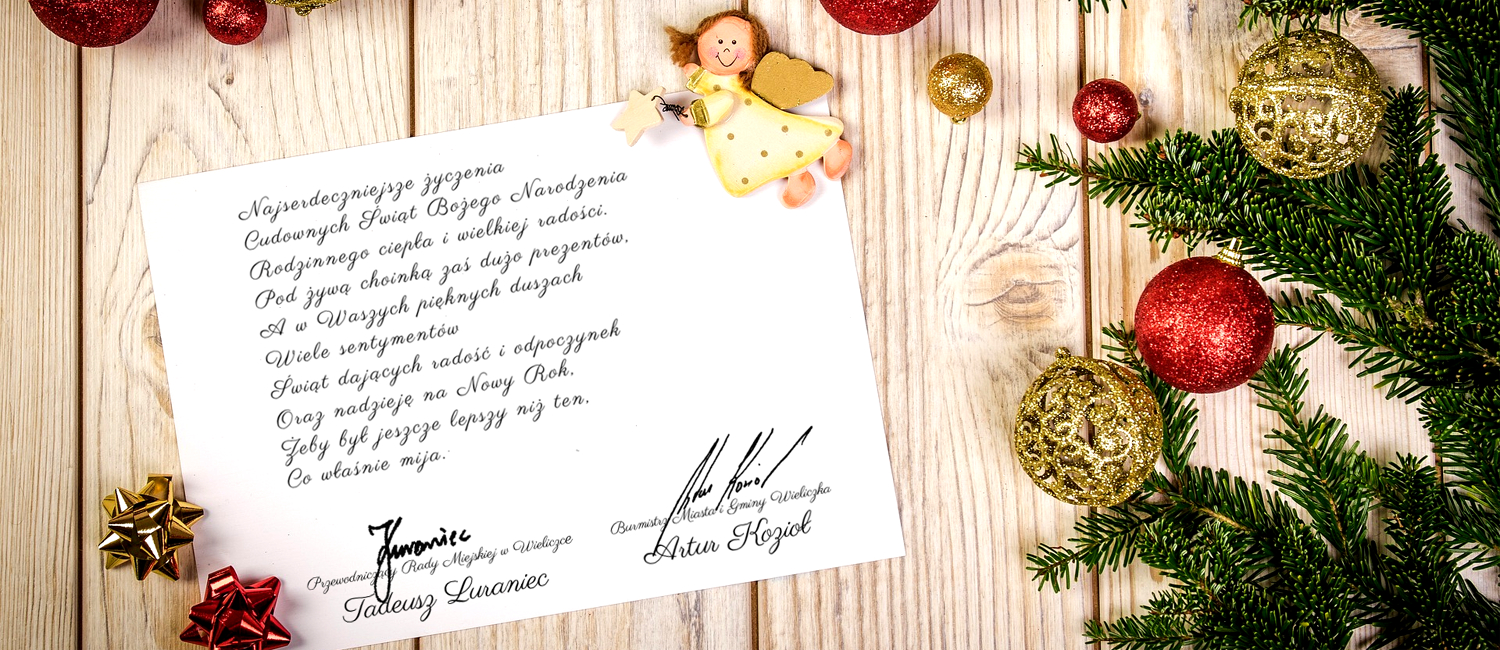 Najserdeczniejsze życzenia
Cudownych Świąt Bożego Narodzenia
Rodzinnego ciepła i wielkiej radości.
Pod żywą choinką zaś dużo prezentów,
A w Waszych pięknych duszach
Wiele sentymentów
Świąt dających radość i odpoczynek
Oraz nadzieję na Nowy Rok,
Żeby był jeszcze lepszy niż ten,
Co właśnie mija.
Luraniec
Przewodniczący Rady Miejskiej w Wieliczce
Tadeusz Luraniec
Artur Kozioł
Burmistrz Miasta i Gminy Wieliczka
Artur Kozioł